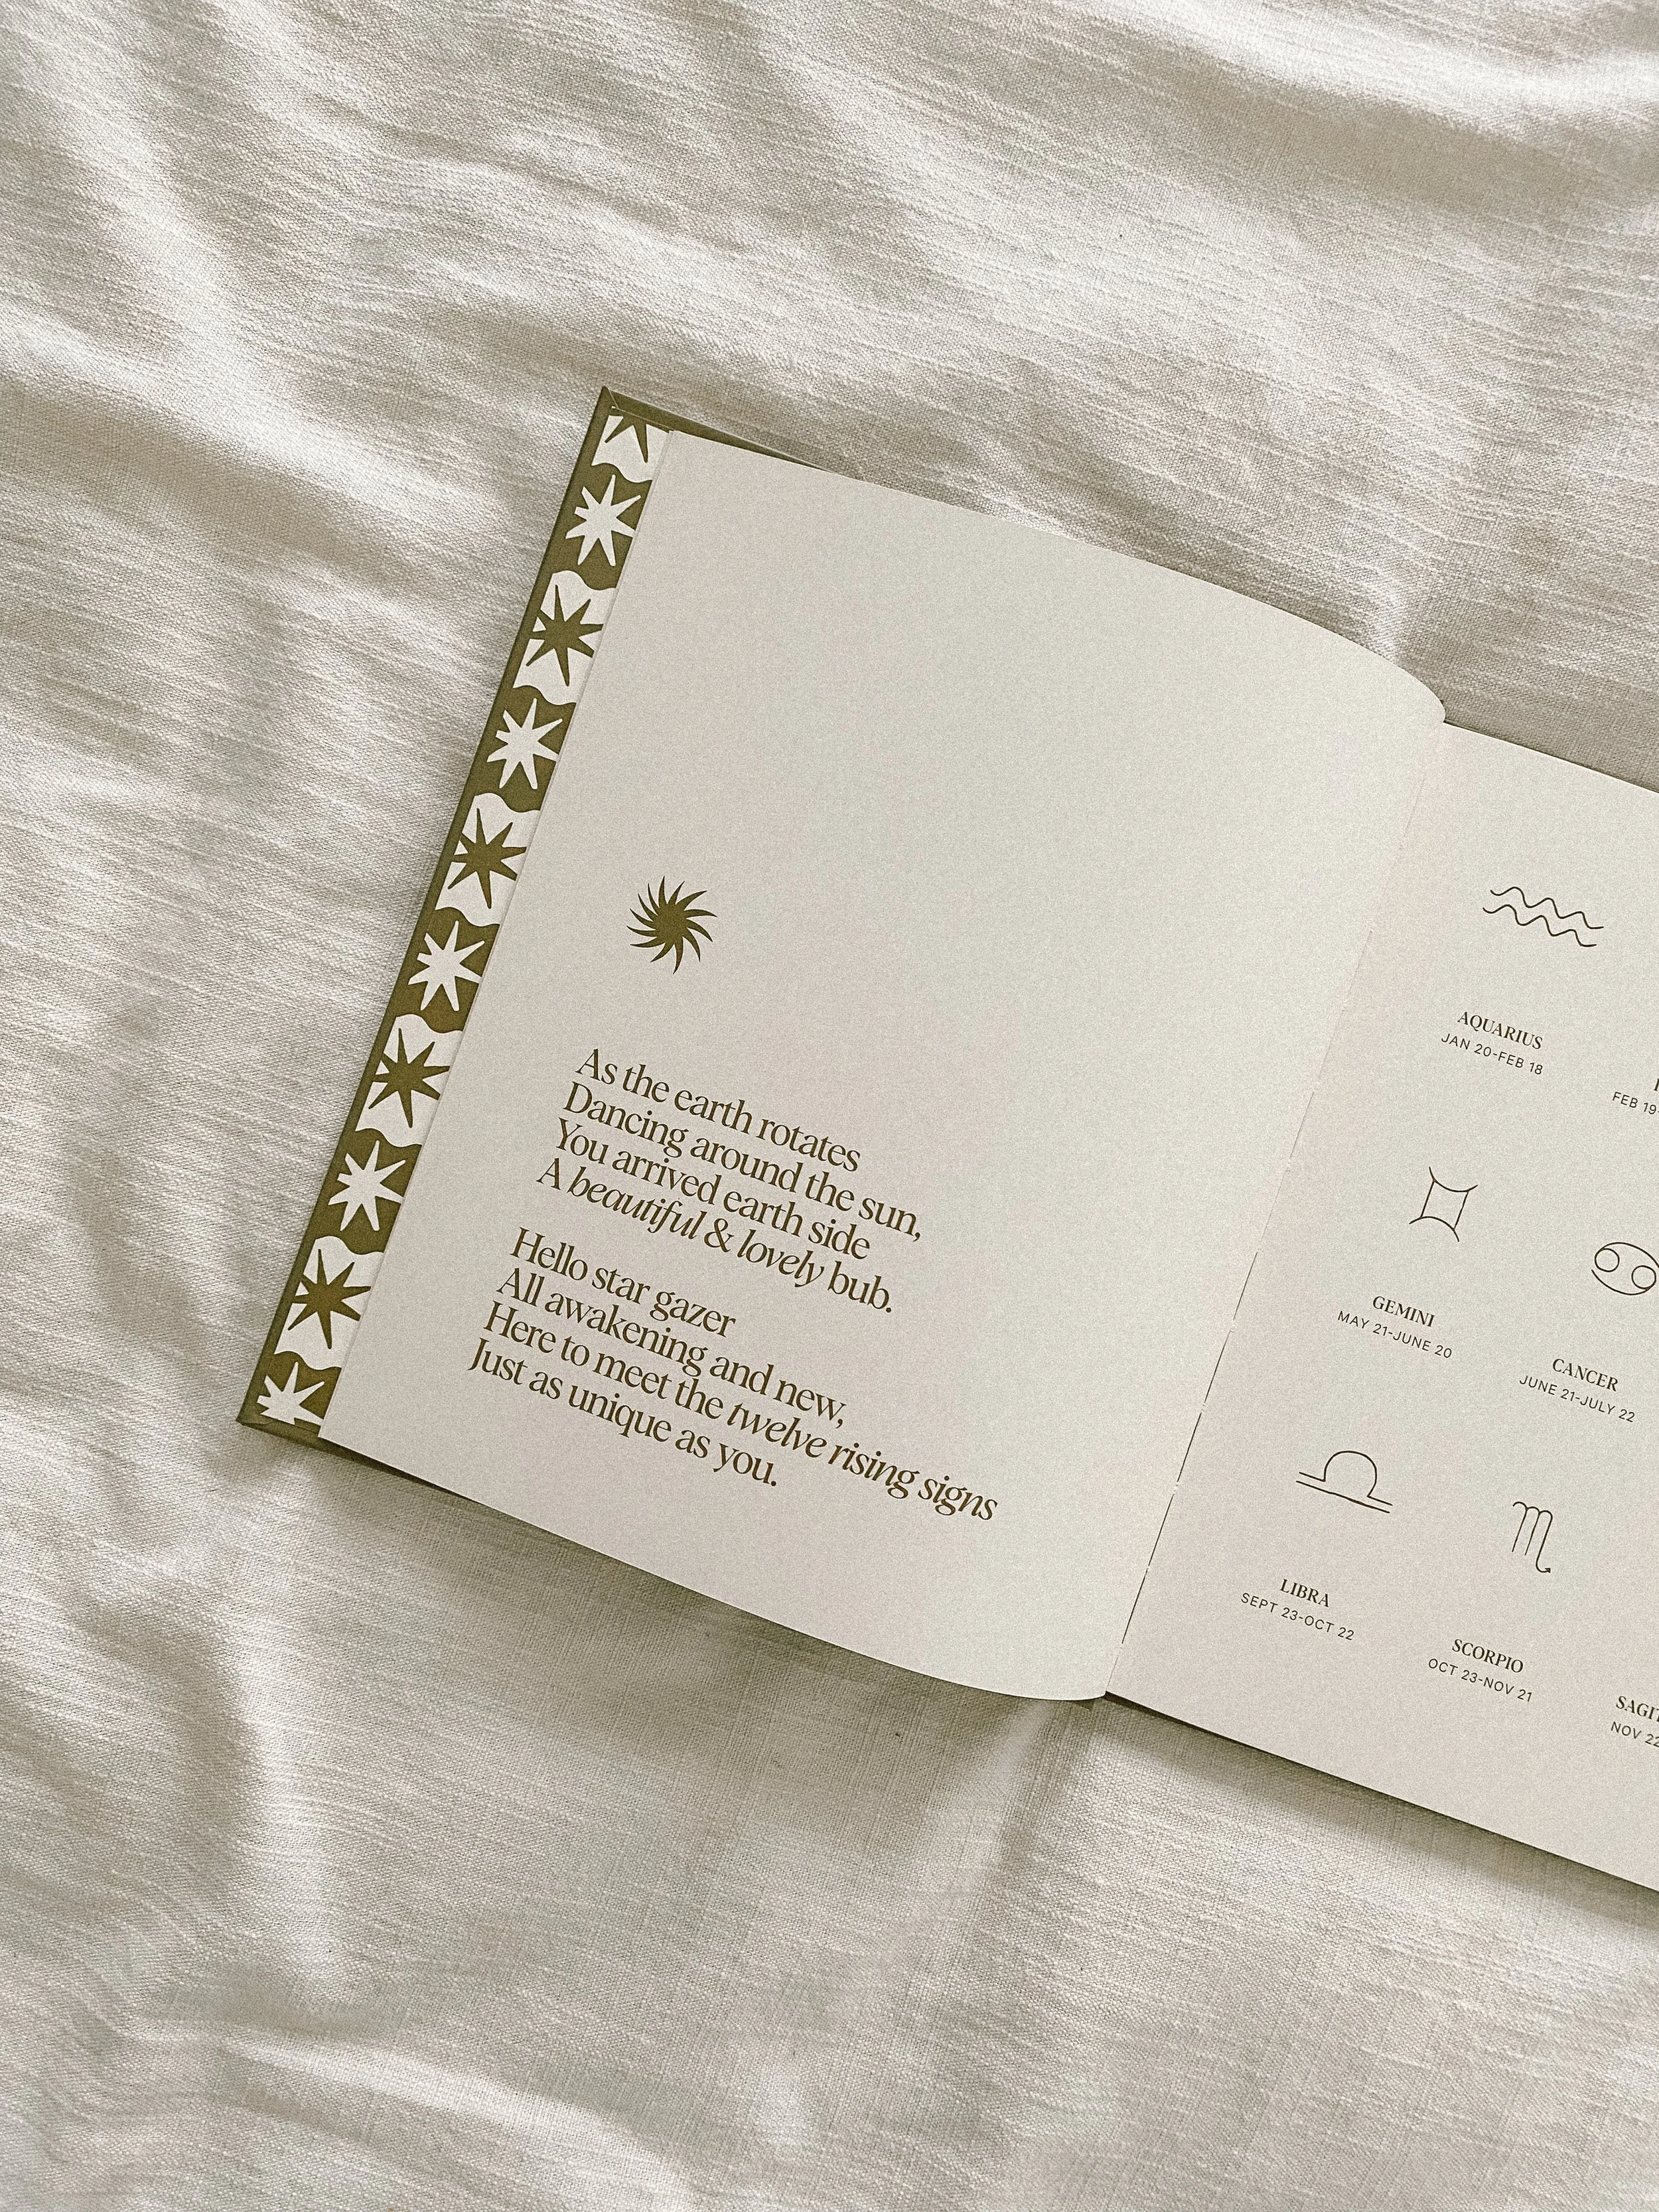 As the earth rotates
Dancing around the sun,
You arrived earth side
A beautiful & lovely bub.
Hello star gazer
All awakening and new,
Here to meet the twelve rising signs
Just as unique as you.
AQUARIUS
JAN 20-FEB 18
FEB 19-
GEMINI
MAY 21-JUNE 20
CANCER
JUNE 21-JULY 22
LIBRA
SEPT 23-OCT 22
SCORPIO
OCT 23-NOV 21
NOV 22